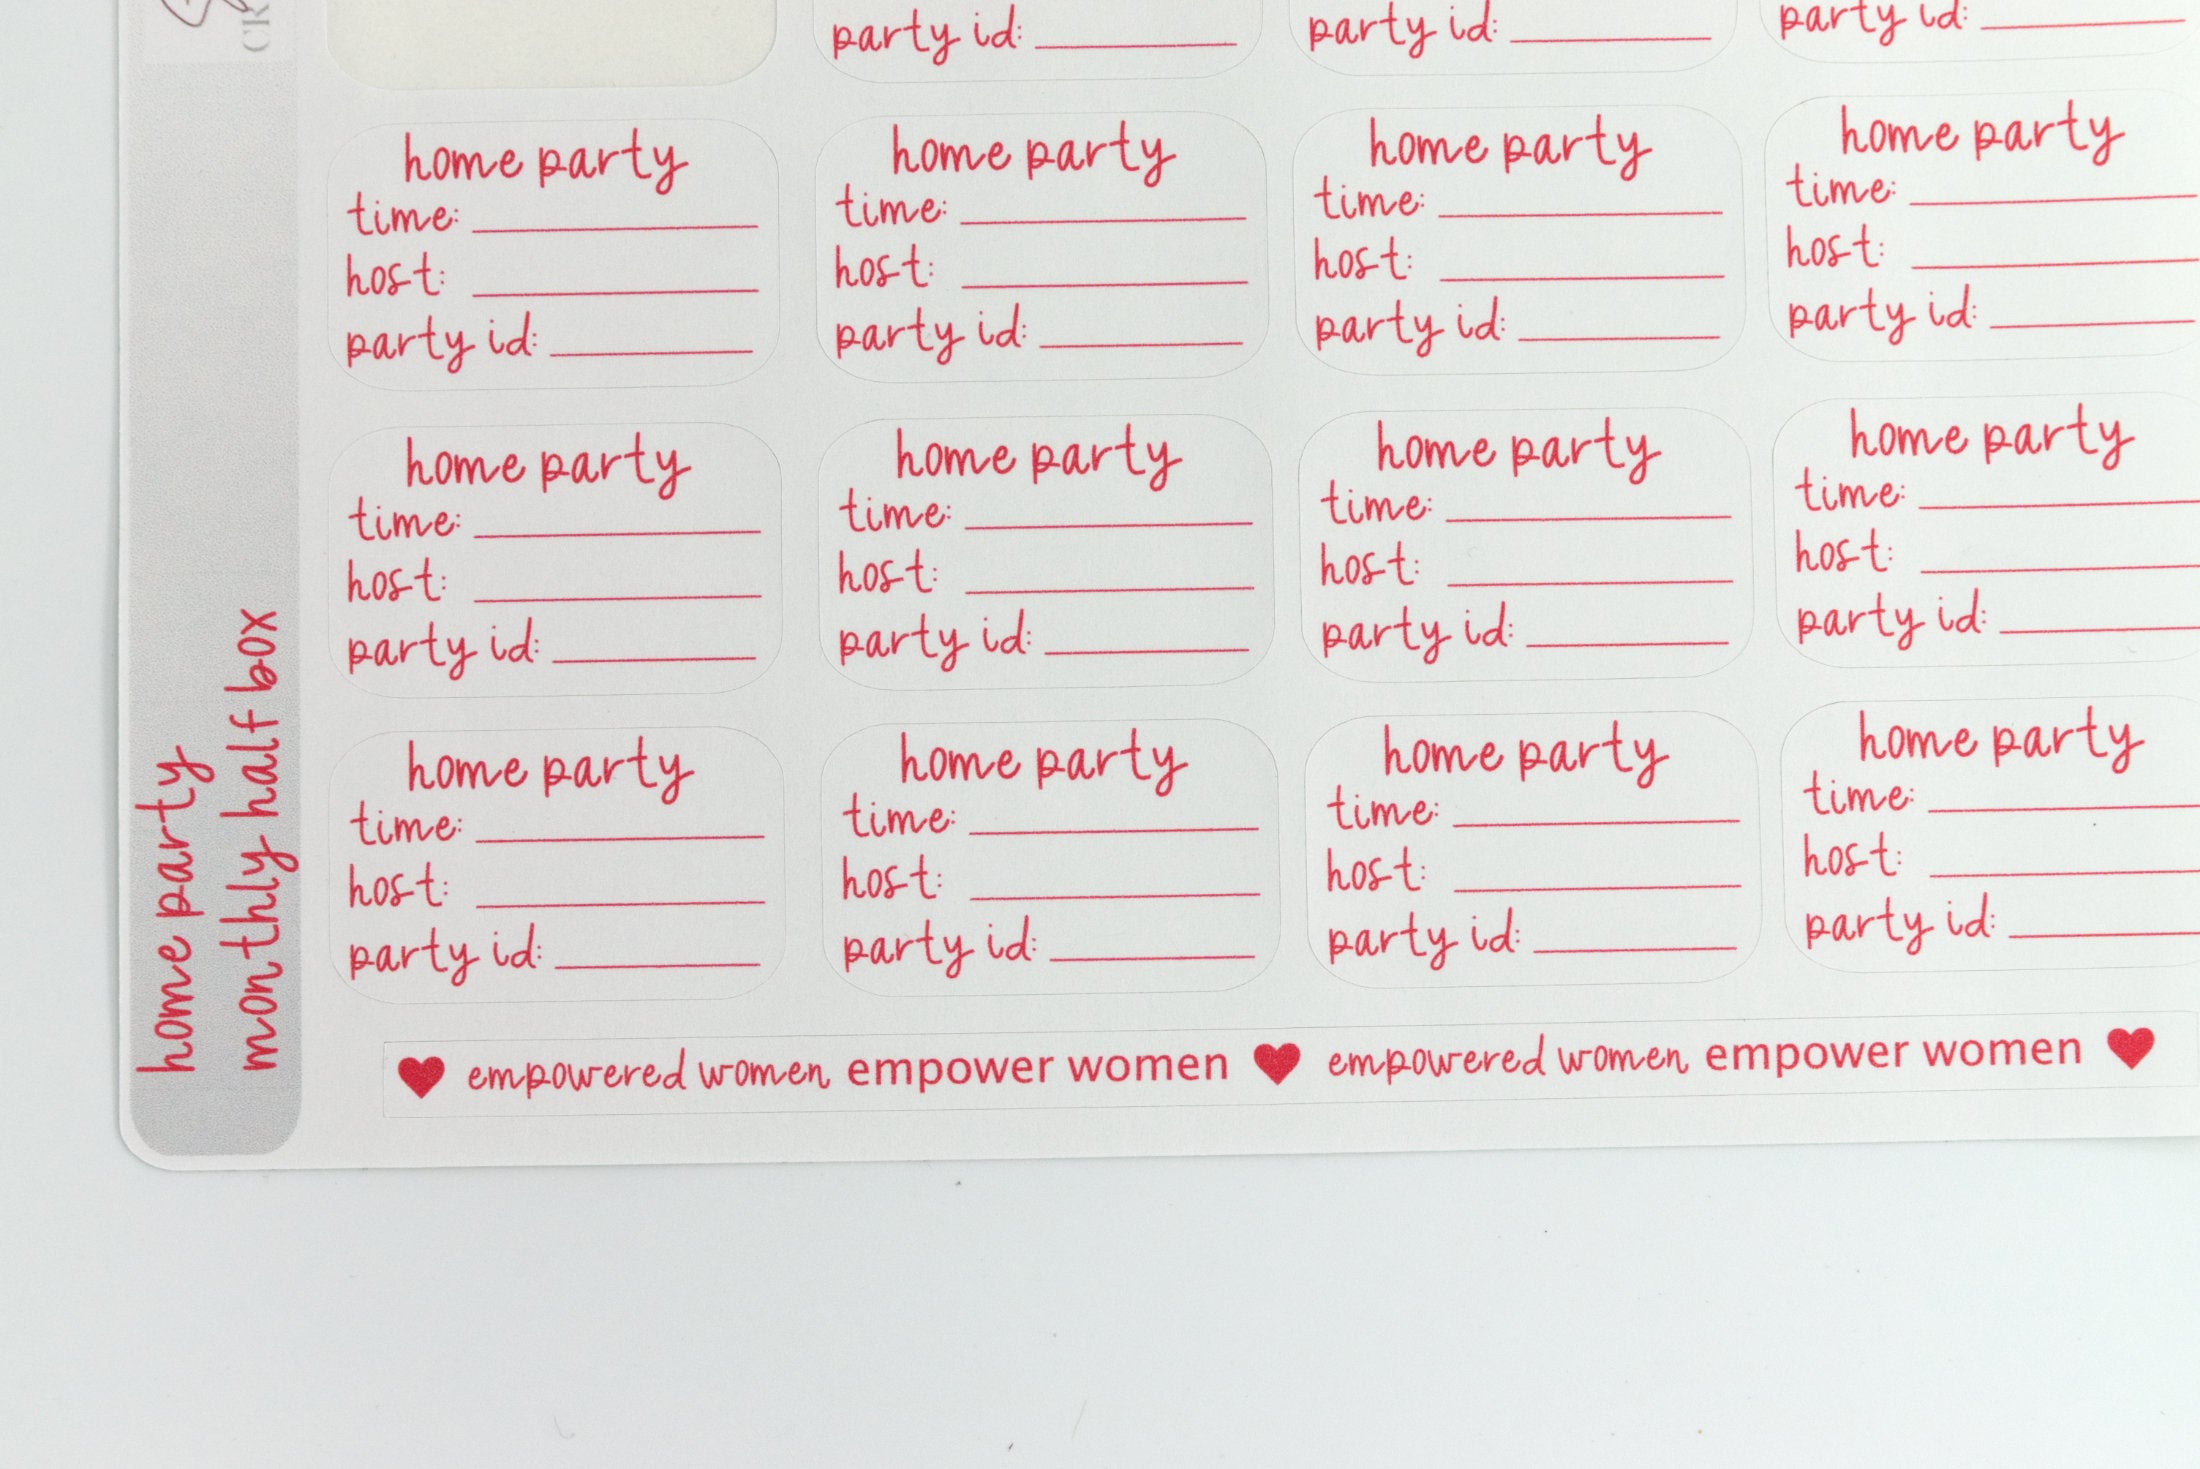 party id:
party id:
party id:
home party
time:
host:
party id:
home party
time:
host:
party id:
home party
time:
host:
party id:
home party
time:
host:
party id:
home party
time:
host:
party id:
home party
time:
host:
party id:
home party
time:
host:
party id:
home party
time:
host:
party id:
home party
time:
host:
party id:
home party
time:
host:
party id:
home party
time:
host:
party id:
home party
time:
host:
party id:
empowered women empower women empowered women empower women
home party
monthly half box